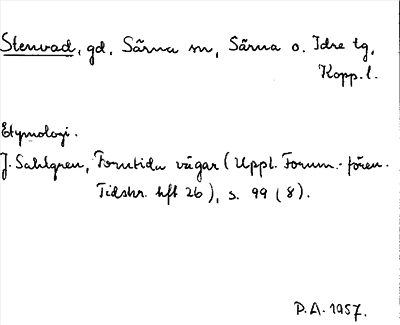 Stenvad, gd, Särna sn, Särna o. Idre tg,
Kopp. l.
Etymologi.
J. Sahlgren, Forntida vägar (Uppl. Fornm.-fören.
Tidskr. hft 26), s. 99 (8).
P.A. 1957.